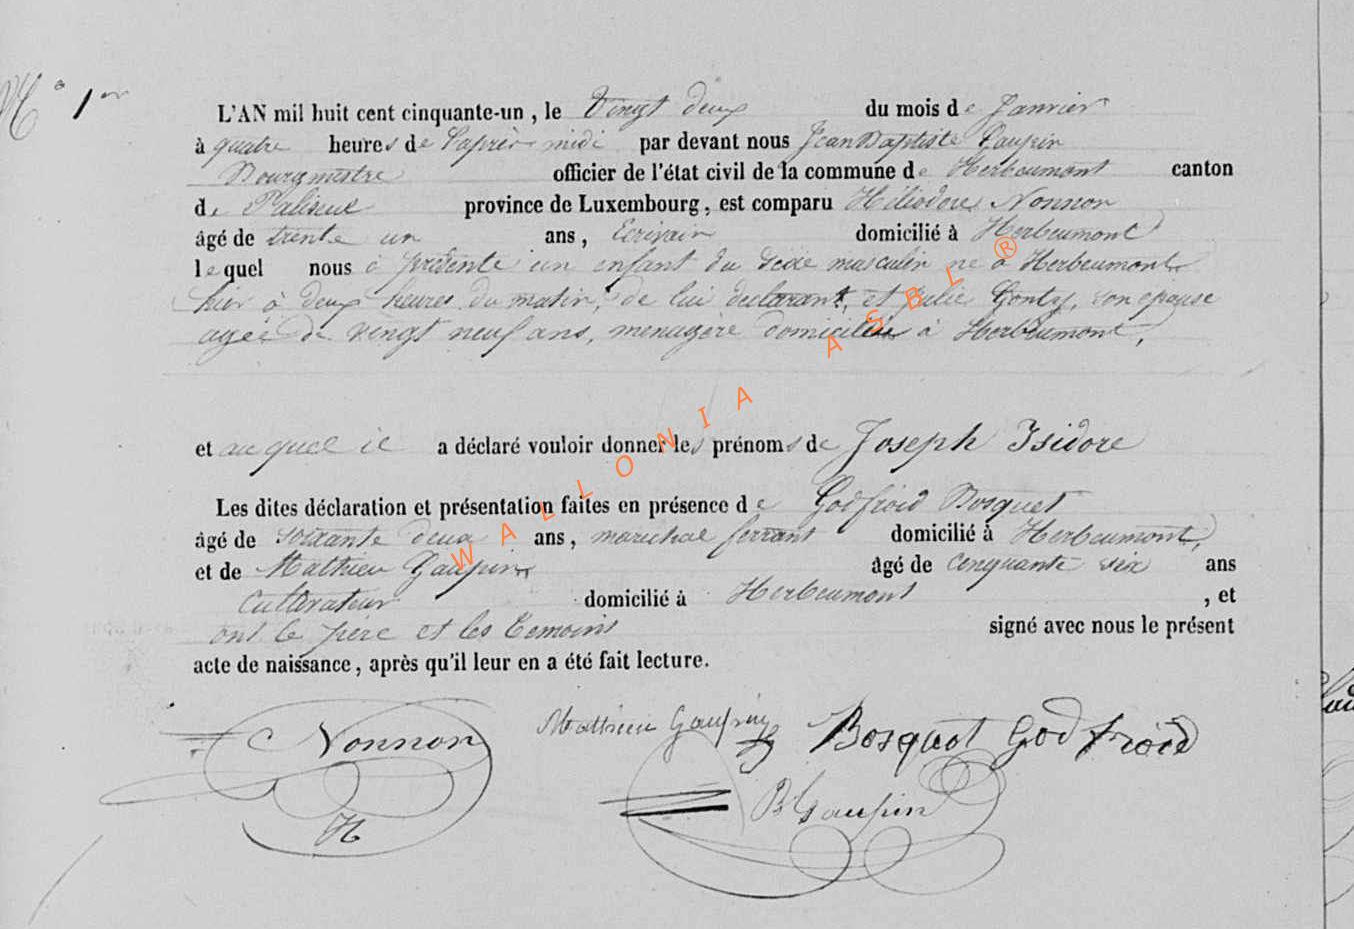 N° 1er
L'AN mil huit cent cinquante-un, le Vingt deux du mois de Janvier
à quatre heures de l'après-midi par devant nous Jean Baptiste Gaupin
Bourgmestre officier de l'état civil de la commune de Herbeumont canton
de Paliseul province de Luxembourg, est comparu Héliodore Nonnon
âgé de trente un ans, Ecrivain domicilié à Herbeumont
lequel nous à présenté un enfant du sexe masculin né à Herbeumont
hier à deux heures du matin, de lui déclarant, et Julie Gonty, son épouse
agée de vingt neuf ans, menagère domiciliée à Herbeumont,
et auquel il a déclaré vouloir donner les prénoms de Joseph Isidore
Les dites déclaration et présentation faites en présence de Godfroid Bosquet
âgé de soixante deux ans, maréchal ferrant domicilié à Herbeumont,
et de Mathieu Gaupin âgé de cinquante six ans
Cultivateur domicilié à Herbeumont, et
ont le père et les témoins signé avec nous le présent
acte de naissance, après qu'il leur en a été fait lecture.
Nonnon
H
Mathieu Gaupin
Bosquet Godfroid
B Gaupin
WALLONIA ASBL ®